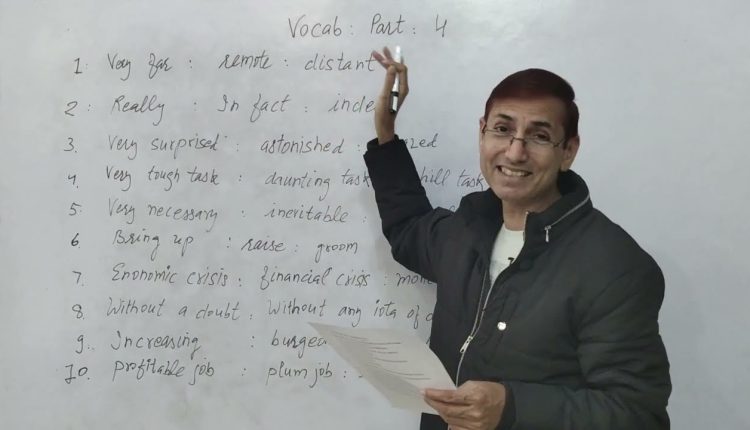 Vocab : Part : 4
1. Very far : remote : distant
2. Really : In fact : inde
3. Very surprised : astonished : zed
4. Very tough task : daunting task hill task
5. Very necessary : inevitable :
6. Bring up : raise : groom
7. Enonomic crisis : financial crisis : mon
8. Without a doubt : Without any iota of
9. Increasing : burgea
10. Profitable job : plum job :